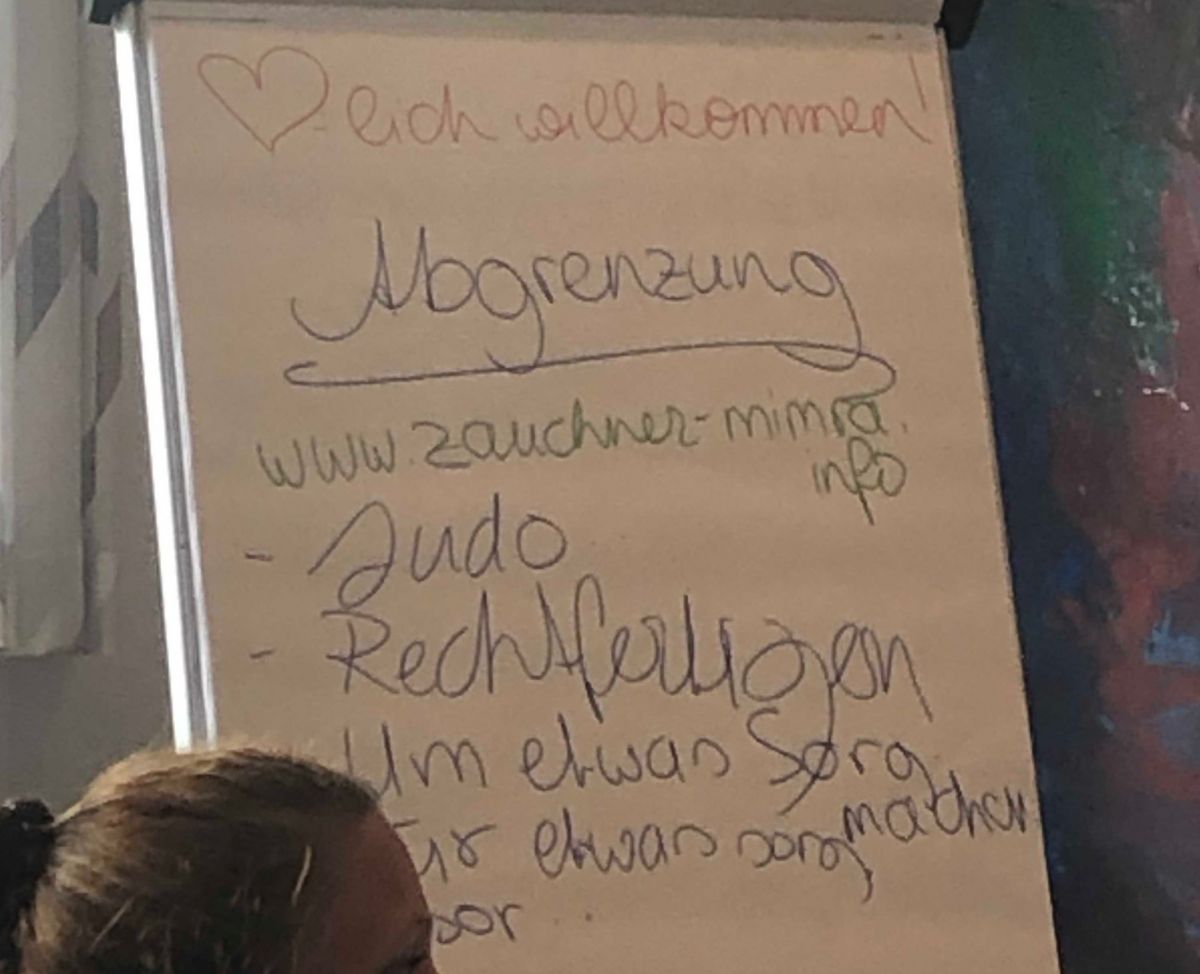 ♡-lich willkommen!
Abgrenzung
www.zauchner-mimra.
info
- Judo
- Rechtfertigen
Um etwas Sorg.
machen
für etwas sorg,